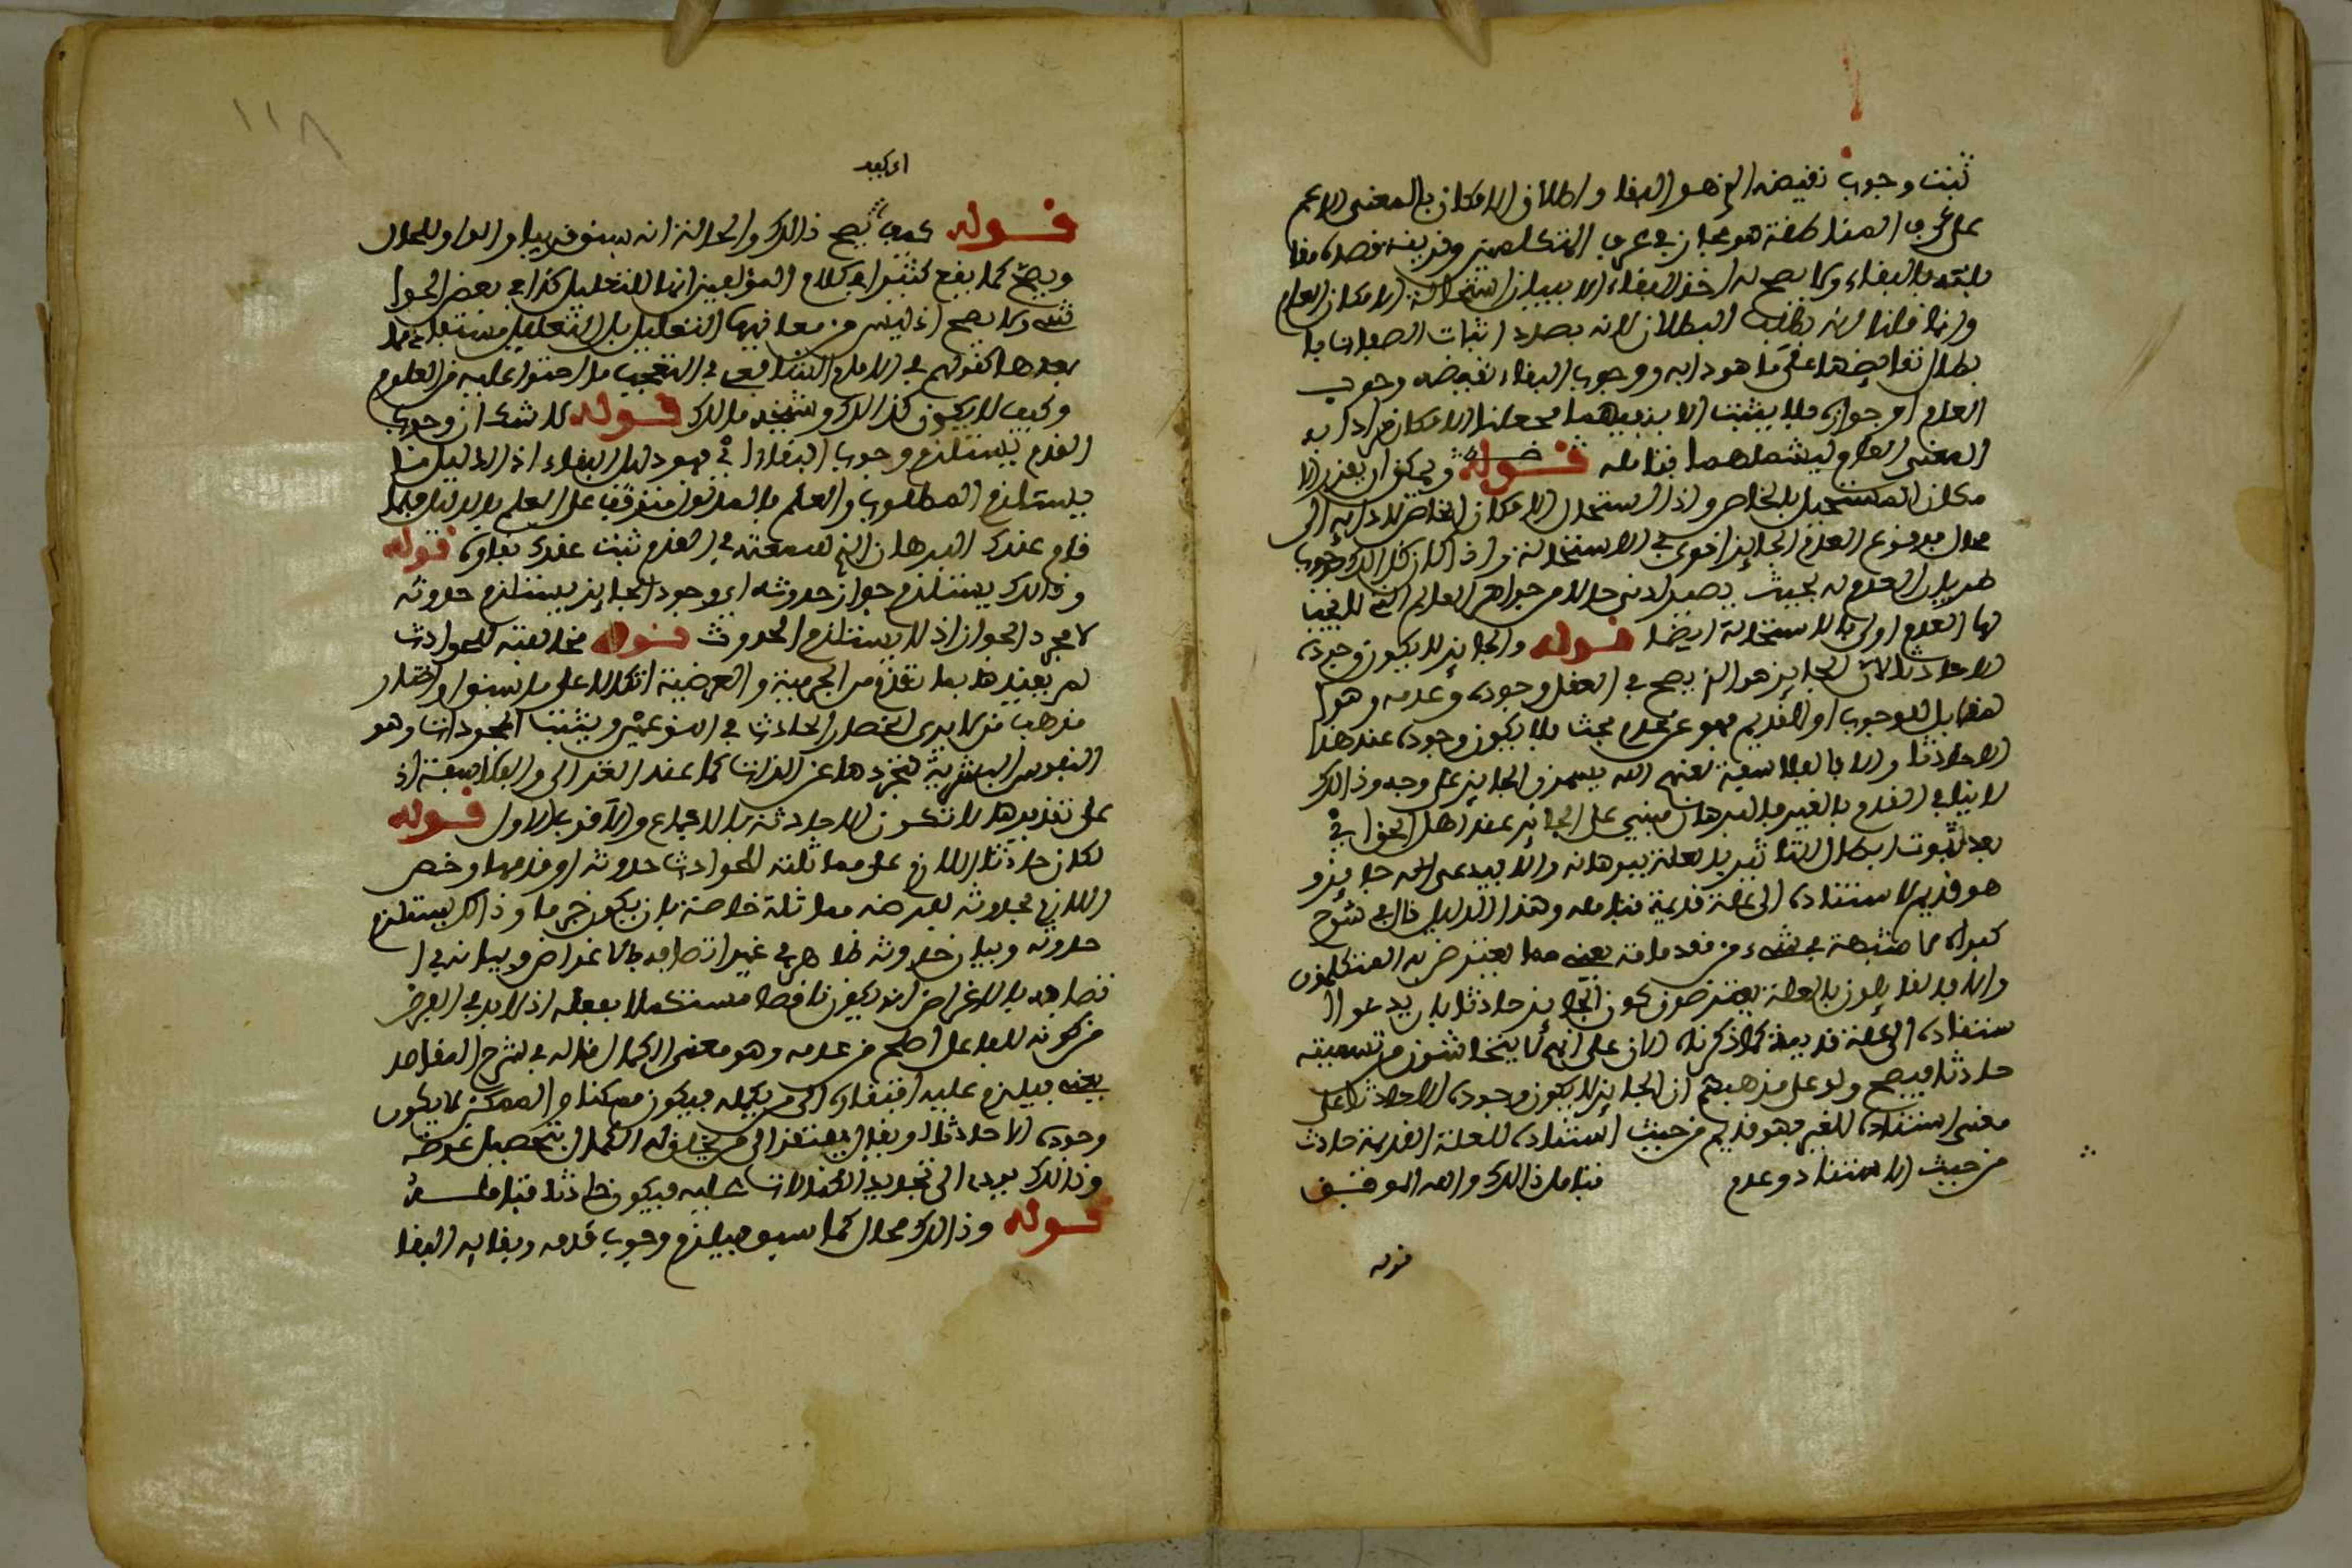 ثبت وجوب نقيضه الذي هو البقا واطلاق الامكان بالمعنى الاعم
على عرف المناطقة هو مجاز في عرف المتكلمين وقرينته قصده مقا
بلته بالبقاء ولا يصح له اخذ البقاء الا ببيان استحالة الامكان العام
وانما قلنا انه يطلب البطلان لانه بصدد اثبات الصفات با
بطال نقايضها على ما هو دابه ووجوب البقاء نقيضه وجوب
العدم او جوازه فلا يثبت الا بنفيهما فجعلنا الامكان مرادا به
المعنى العام ليشملهما فتامله قوله ويمكن ان يقرر الا
مكان المستحيل بالخاص واذا استحال الامكان الخاص لادايه الى
محال فوقوع العدم الجايز اقوى في الاستحالة واذا كان كذالك فوجوب
طريان العدم له بحيث يصير ادنى حالا من جواهر العالم التي لا يجب
لها العدم اولى بالاستحالة ايضا قوله والجايز لا يكون وجوده
الا حادثا لان الجايز هو الذي يصح في العقل وجوده وعدمه وهو
مقابل للوجوب او للقديم فهو عن عدم بحث فلا يكون وجوده عند هذا
الا حادثا والا بالفلاسفة لعنهم الله يسمون الجايز على وجه وذالك
لا ينافي القدم بالغير فالبرهان مبني على الجايز عند اهل الحق اي
بعد ثبوت ابطال التاثير بالعلة ببرهانه والا فيدعى انه جايز و
هو قديم لاستناده الى علة قديمة فتامله وهذا الدليل قال في شرح
كبراه لا شبهة في شيء من مقدماته يعني مما يعترض به المتكلمون
والا فالقايلون بالعلة يعترضون كون الجايز حادثا بان يدعوا ا
ستناده الى علة قديمة كما ذكرناه الان على انهم لا يتحاشون من تسميته
حادثا فيصح ولو على مذهبهم ان الجايز لا يكون وجوده الا حادثا على
معنى استناده للغير فهو قديم من حيث استناده للعلة القديمة حادث
من حيث الاستناد وعدم فتامل ذالك والله الموفق
قوله
١١٨
اي كيف
قوله كيف يصح ذالك والحالة انه سبق قريبا والواو للحال
ويصح كما يقع كثيرا في كلام المؤلفين انها للتعليل كذا في بعض الحوا
شي ولا يصح اذ ليس من معانيها التعليل بل التعليل مستفاد مما
بعدها كقولهم في الامام الشافعي في التعجب ما احتوا عليه من العلوم
وكيف لا يكون كذالك وشيخه مالك قوله لا شك ان وجوب
القدم يستلزم وجوب البقاء اي فهو دليل البقاء اذ الدليل ما
يستلزم المطلوب والعلم بالمدلول متوقف على العلم بالدليل فلما
قام عندك البرهان الذي سمعته في القدم ثبت عندك بقاوه قوله
وذالك يستلزم جواز حدوثه اي وجود الجايز يستلزم حدوثه
لا مجرد الجواز اذ لا يستلزم الحدوث قوله مخالفته للحوادث
لم يقيدها بما تقدم من الجرمية والعرضية اتكالا على ما سبق او اختار
مذهب من لا يرى انحصار الحادث في النوعين ويثبت المجردات وهو
النفوس البشرية لتجردها عن الذات كما عند الغزالي والفلاسفة اذ
على تقديرها لا تكون الا حادثة بالاجماع والاقرب الاول قوله
لكان حادثا اللازم على مماثلته للحوادث حدوثه او قدمها وخص
اللازم بحدوثه لفرضه مماثلة خاصة بان يكون جرما وذالك يستلزم
حدوثه وبيان حدوثه ظاهر في غير اتصافه بالاغراض وبيانه في ا
تصافه بالاغراض انه يكون ناقصا مستكملا بفعله اذ لا بد في الغرض
من كونه للفاعل اصلح من عدمه وهو معنى الكمال قاله في شرح المقاصد
يعني فيلزم عليه افتقاره الى من يكمله فيكون ممكنا والممكن لا يكون
وجوده الا حادثا او يقال يفتقر الى من يخلق له الكمال بتحصيل غرضه
وذالك يودي الى تجديد الكمالات عليه فيكون حادثا فتامله
قوله وذالك محال كما سبق فيلزم وجوب قدمه وبقايه البقا